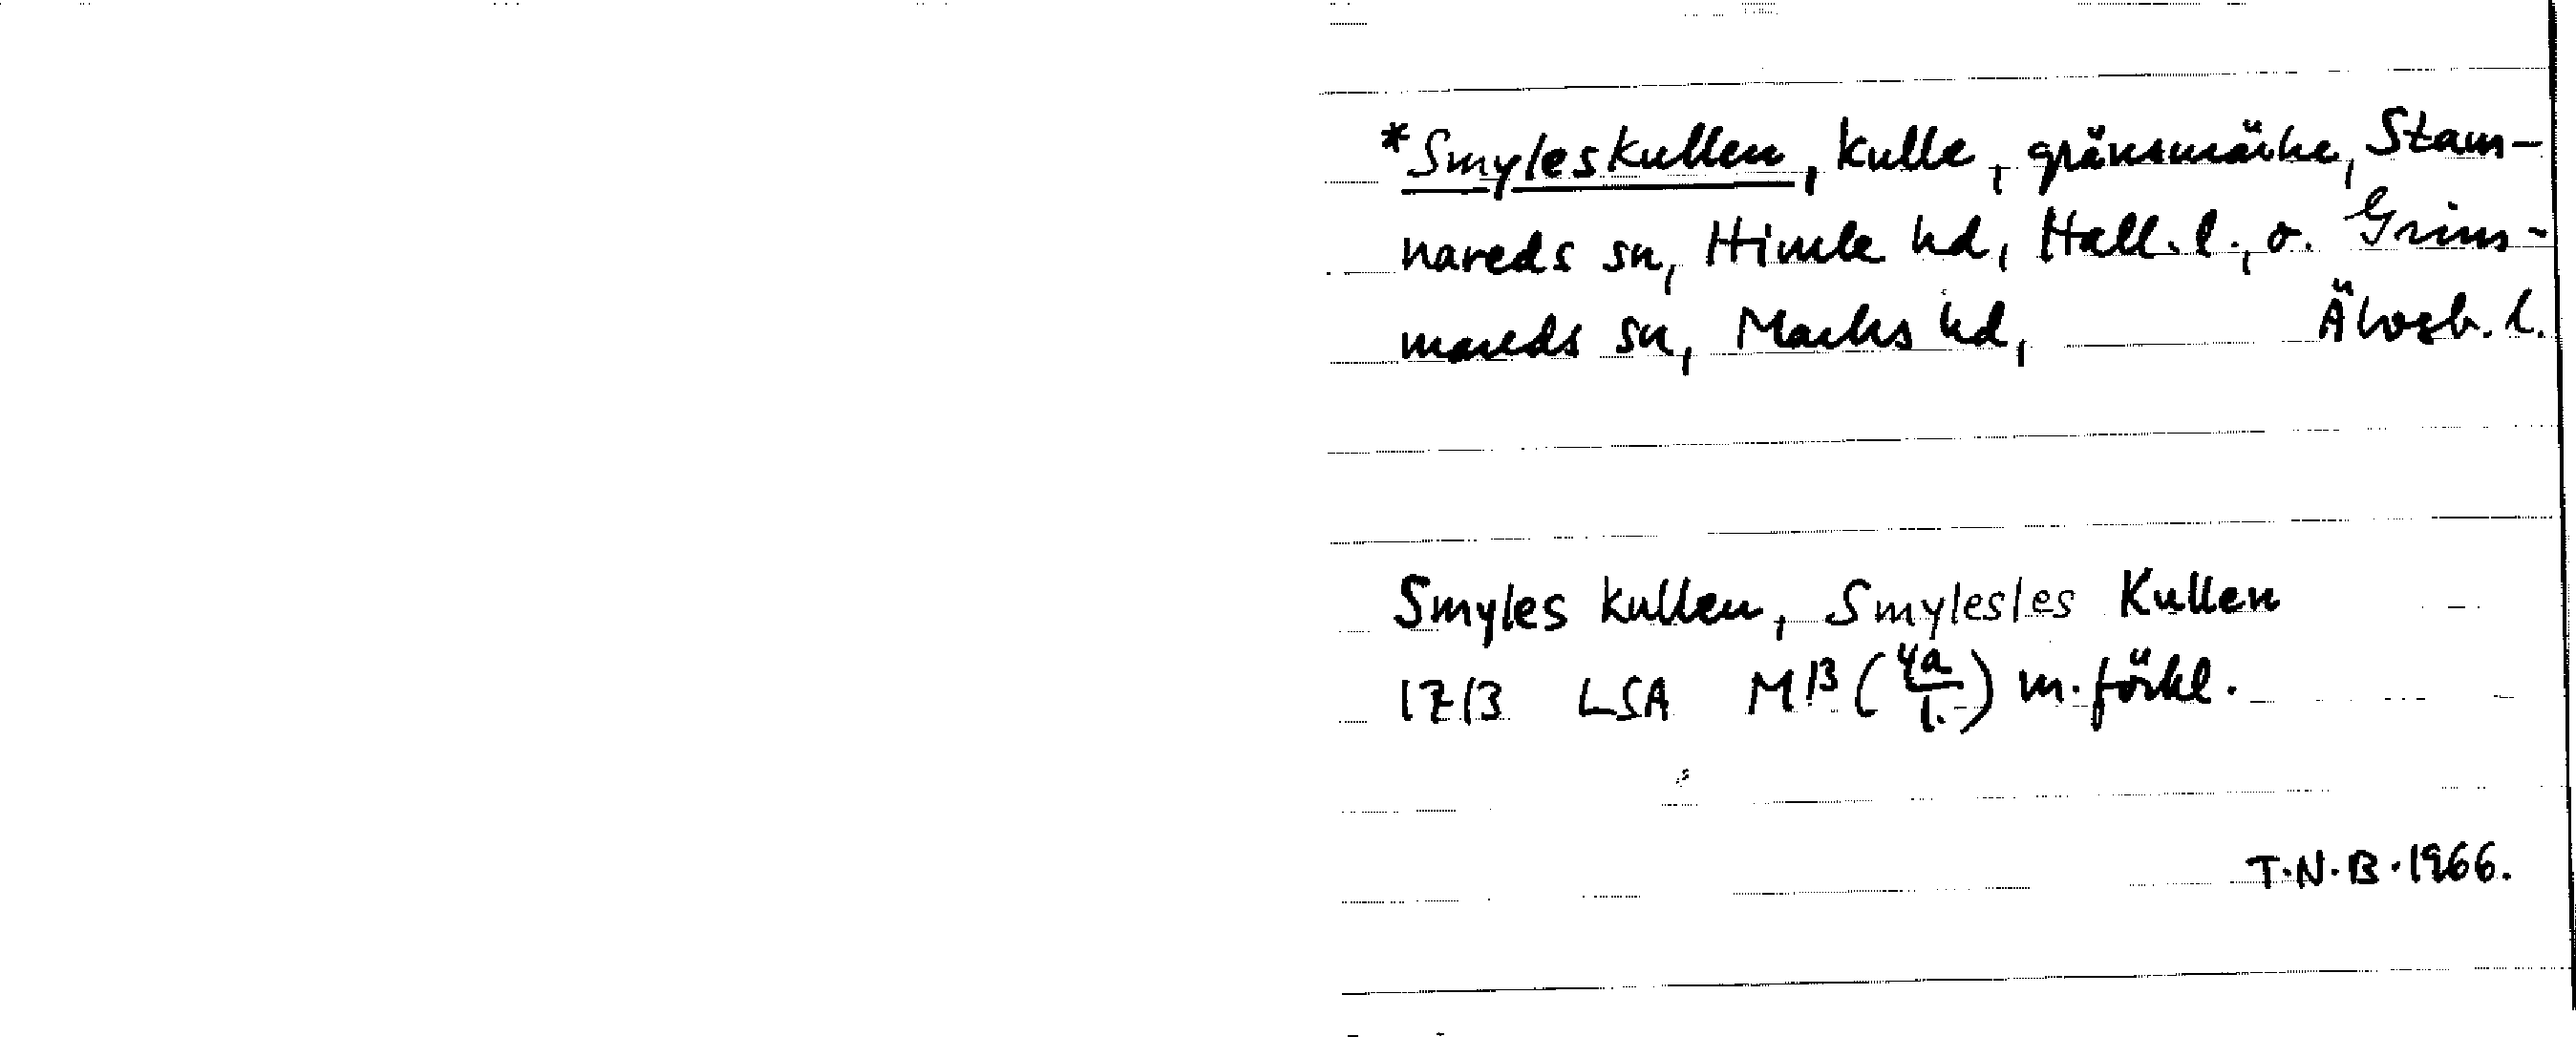 *Smyleskullen, kulle, gränsmärke, Stam-
nareds sn, Himle hd, Hall. l., o. Grim-
mareds sn, Marks hd, Älvsb. l.
Smyles kullen, Smylesles Kullen
1713 LSA M13 (4a/1.) m. förkl.
T.N.B. 1966.